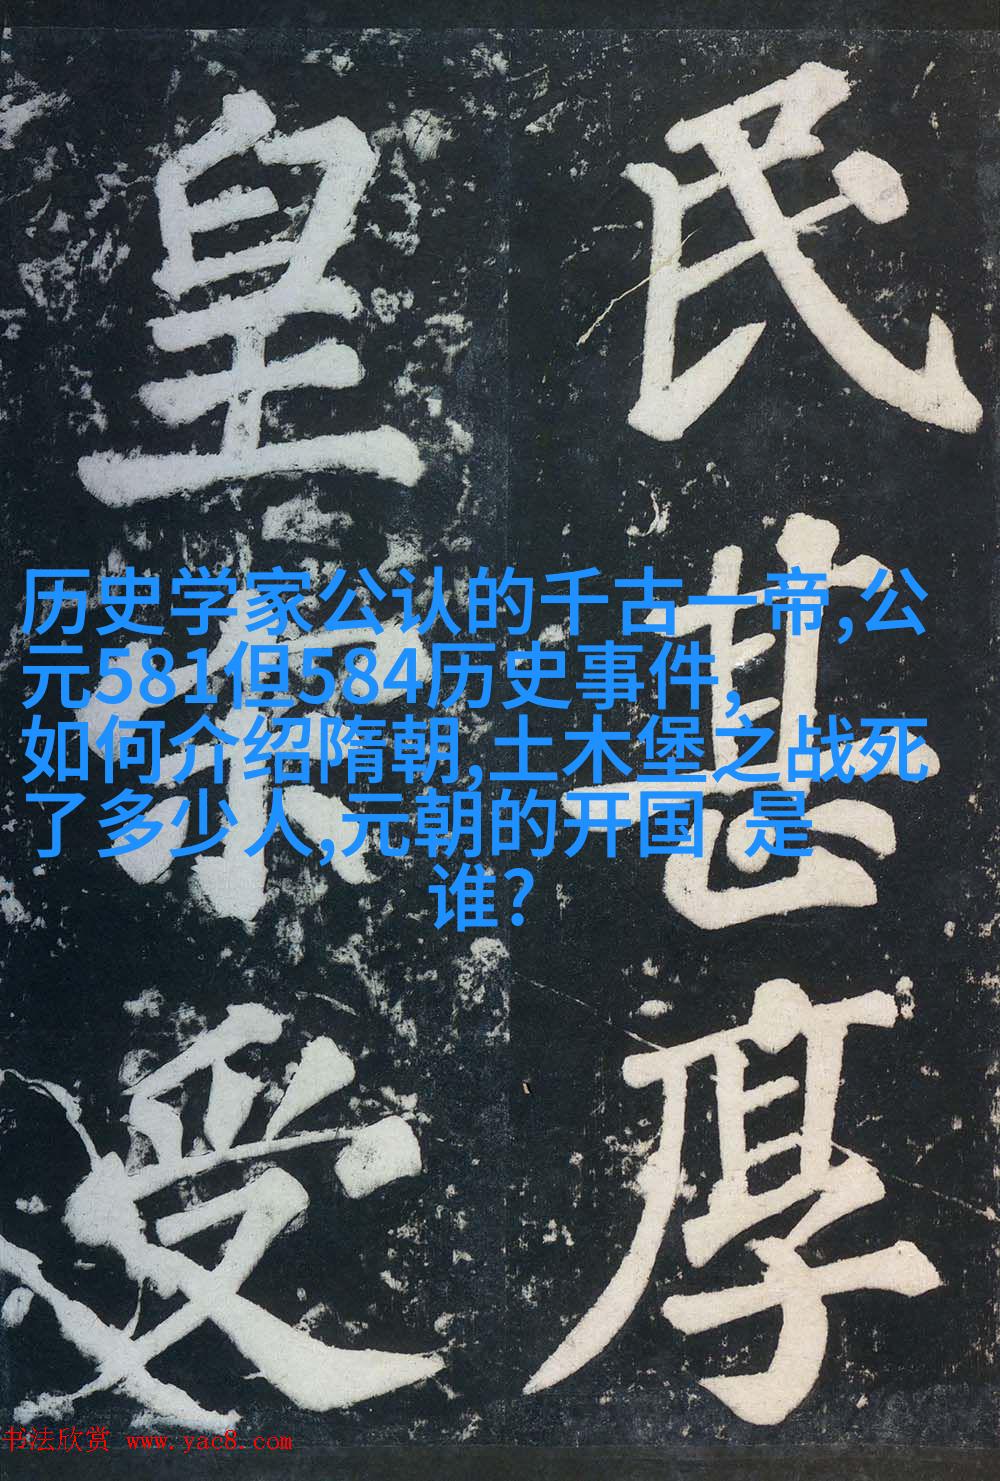 民甚厚
皇宋受
历史学家公认的千古一帝,公
元581但584历史事件,
如何介绍隋朝,土木堡之战死
了多少人,元朝的开国 是
谁?
书法欣赏 www.yac8.com